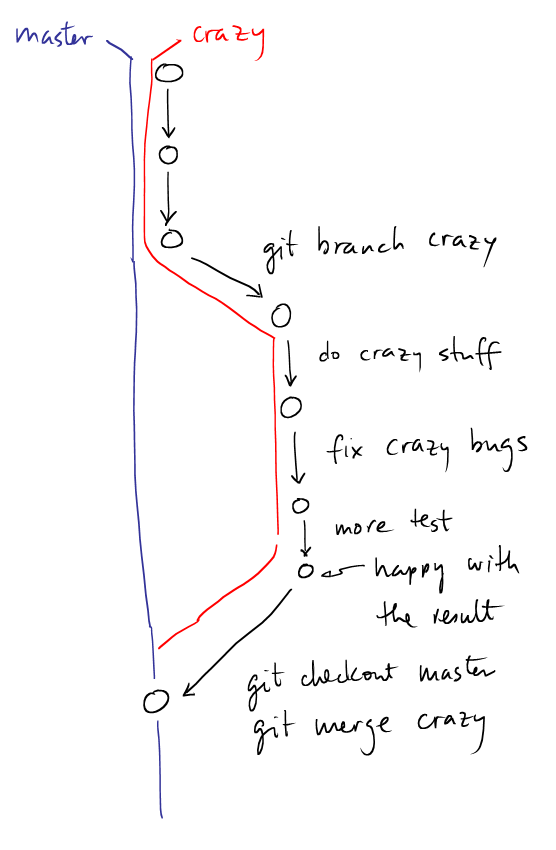 master
crazy
git branch crazy
do crazy stuff
fix crazy bugs
more test
happy with
the result
git checkout master
git merge crazy